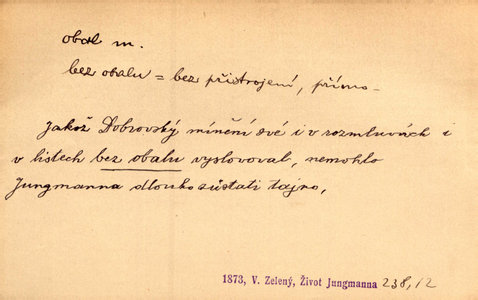 obal m.
bez obalu = bez přistrojení, přímo –
Jakož Dobrovský mínění své i v rozmluvách i
v listech bez obalu vyslovoval, nemohlo
Jungmanna dlouho zůstati tajno,
1873, V. Zelený, Život Jungmanna 238,12